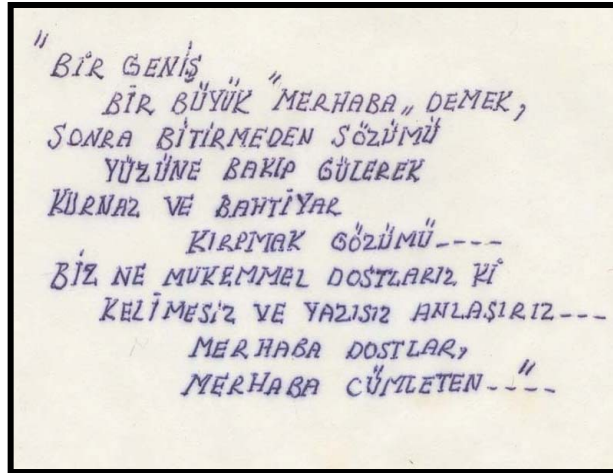 "BİR GENİŞ
BİR BÜYÜK "MERHABA„ DEMEK,
SONRA BİTİRMEDEN SÖZÜMÜ
YÜZÜNE BAKIP GÜLEREK
KURNAZ VE BAHTİYAR
KIRPMAK GÖZÜMÜ----
BİZ NE MUKEMMEL DOSTLARIZ Kİ
KELİMESİZ VE YAZISIZ ANLAŞIRIZ---
MERHABA DOSTLAR,
MERHABA CÜMLETEN----"